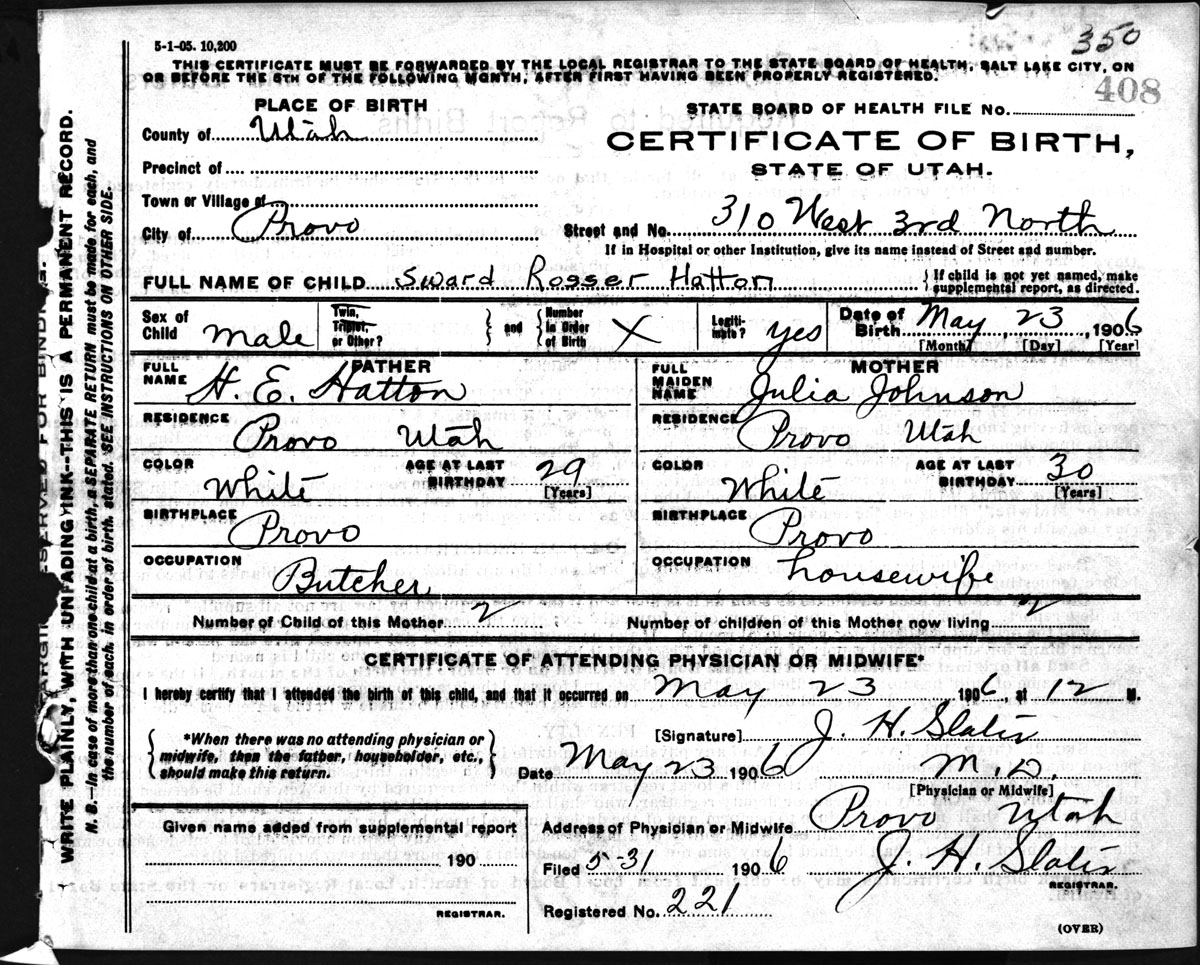 350
5-1-05. 10,200
THIS CERTIFICATE MUST BE FORWARDED BY THE LOCAL REGISTRAR TO THE STATE BOARD OF HEALTH, SALT LAKE CITY, ON
OR BEFORE THE 5TH OF THE FOLLOWING MONTH, AFTER FIRST HAVING BEEN PROPERLY REGISTERED.
408
PLACE OF BIRTH
STATE BOARD OF HEALTH FILE No.
County of Utah
CERTIFICATE OF BIRTH,
Precinct of
STATE OF UTAH.
Town or Village of
City of Provo
Street and No. 310 West 3rd North
If in Hospital or other Institution, give its name instead of Street and number.
FULL NAME OF CHILD Sward Rosser Hatton
If child is not yet named, make
supplemental report, as directed.
Sex of Child Male
Twin, Triplet, or Other? and Number in Order of Birth X
Legitimate? yes
Date of Birth May 23, 1906
[Month] [Day] [Year]
FATHER
FULL NAME H. E. Hatton
MOTHER
FULL MAIDEN NAME Julia Johnson
RESIDENCE Provo Utah
RESIDENCE Provo Utah
COLOR White
AGE AT LAST BIRTHDAY 29 [Years]
COLOR White
AGE AT LAST BIRTHDAY 30 [Years]
BIRTHPLACE Provo
BIRTHPLACE Provo
OCCUPATION Butcher
OCCUPATION housewife
Number of Child of this Mother 2
Number of children of this Mother now living 2
CERTIFICATE OF ATTENDING PHYSICIAN OR MIDWIFE*
I hereby certify that I attended the birth of this child, and that it occurred on May 23 1906, at 12 M.
*When there was no attending physician or
midwife, then the father, householder, etc.,
should make this return.
[Signature] J. H. Slater
Date May 23 1906 M.D.
[Physician or Midwife]
Given name added from supplemental report
190
REGISTRAR.
Address of Physician or Midwife Provo Utah
Filed 5-31 1906 J. H. Slater
REGISTRAR.
Registered No. 221
(OVER)
WRITE PLAINLY, WITH UNFADING INK--THIS IS A PERMANENT RECORD.
N. B.--In case of more than one child at a birth, a SEPARATE RETURN must be made for each, and
the number of each, in order of birth, stated. SEE INSTRUCTIONS ON OTHER SIDE.